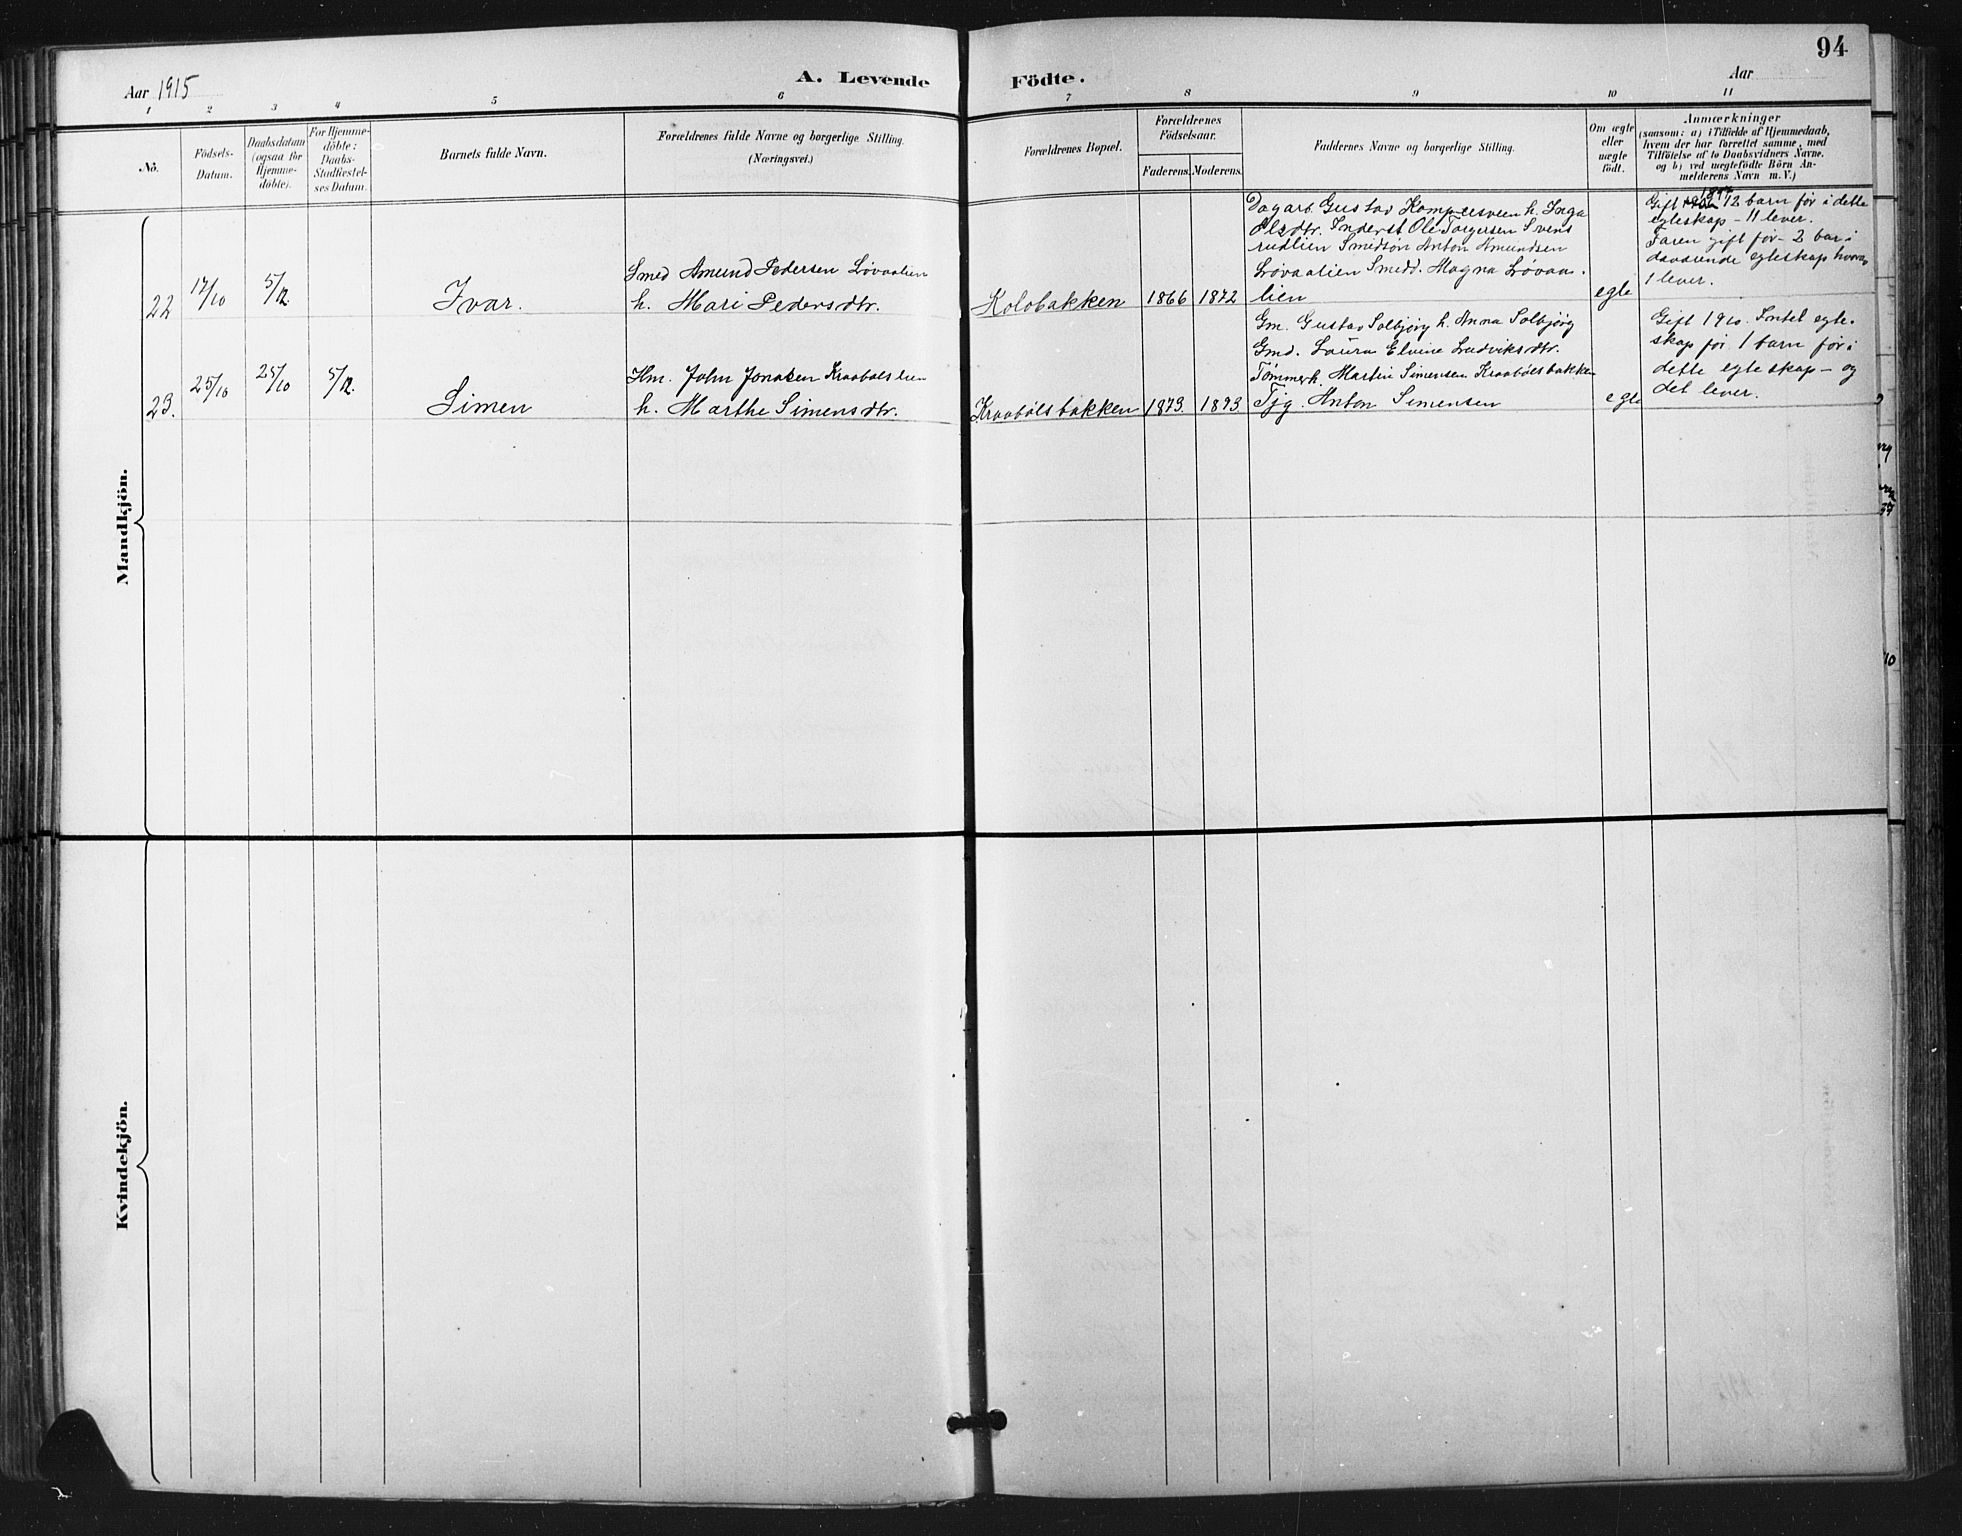 94
Aar 1915
A. Levende
Födte.
Aar
1
2
3
4
5
6
7
8
9
10
11
No.
Födsels-
Datum.
Daabsdatum
(ogsaa for
Hjemme-
döbte).
For Hjemme-
döbte:
Daabs-
Stadfæstel-
ses Datum.
Barnets fulde Navn.
Forældrenes fulde Navne og borgerlige Stilling.
(Næringsvei.)
Forældrenes Bopæl.
Forældrenes
Födselsaar.
Faderens.
Moderens.
Faddernes Navne og borgerlige Stilling.
Om ægte
eller
uægte
födt.
Anmærkninger
(saasom: a) i Tilfælde af Hjemmedaab,
hvem der har forrettet samme, med
Tilföielse af to Daabsvidners Navne,
og b) ved uegtefödte Börn An-
melderens Navn m. V.)
Mandkjön.
22
17/10
5/12.
Ivar.
Smed Amund Pedersen Løvaalien
h. Mari Pedersdtr.
Kolobakken
1866
1872
Dagarb. Gustav Kampesveen h. Inga
Olsdtr. Inderst Ole Torgersen Svens
rudlien Smedsøn Anton Amundsen
Løvaalien Smedd. Magna Løvaa-
lien
egte
Gift 1897 12 barn før i dette
egteskap - 11 lever.
Faren gift før - 2 bar i
daværende egteskap hvorav
1 lever.
23.
25/10
25/10
5/12.
Simen
Hm. John Jonasen Kraabølslien
h. Marthe Simensdtr.
Kraabølsbakken
1873
1893
Gm. Gustav Solbjørg h. Anna Solbjørg
Gmd. Laura Elvine Ludviksdtr.
Tømmerh. Martin Simensen Kraabølsbakken
Tjg. Anton Simensen
egte
Gift 1910. Intet egte-
skap før 1 barn før i
dette egteskap - og
det lever.
Kvindekjön.